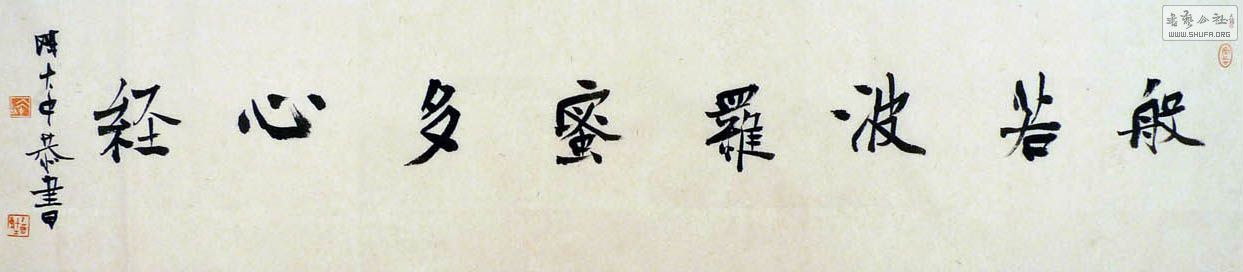 般若波羅蜜多心経
陳大中恭書
書藝公社
WWW.SHUFA.ORG